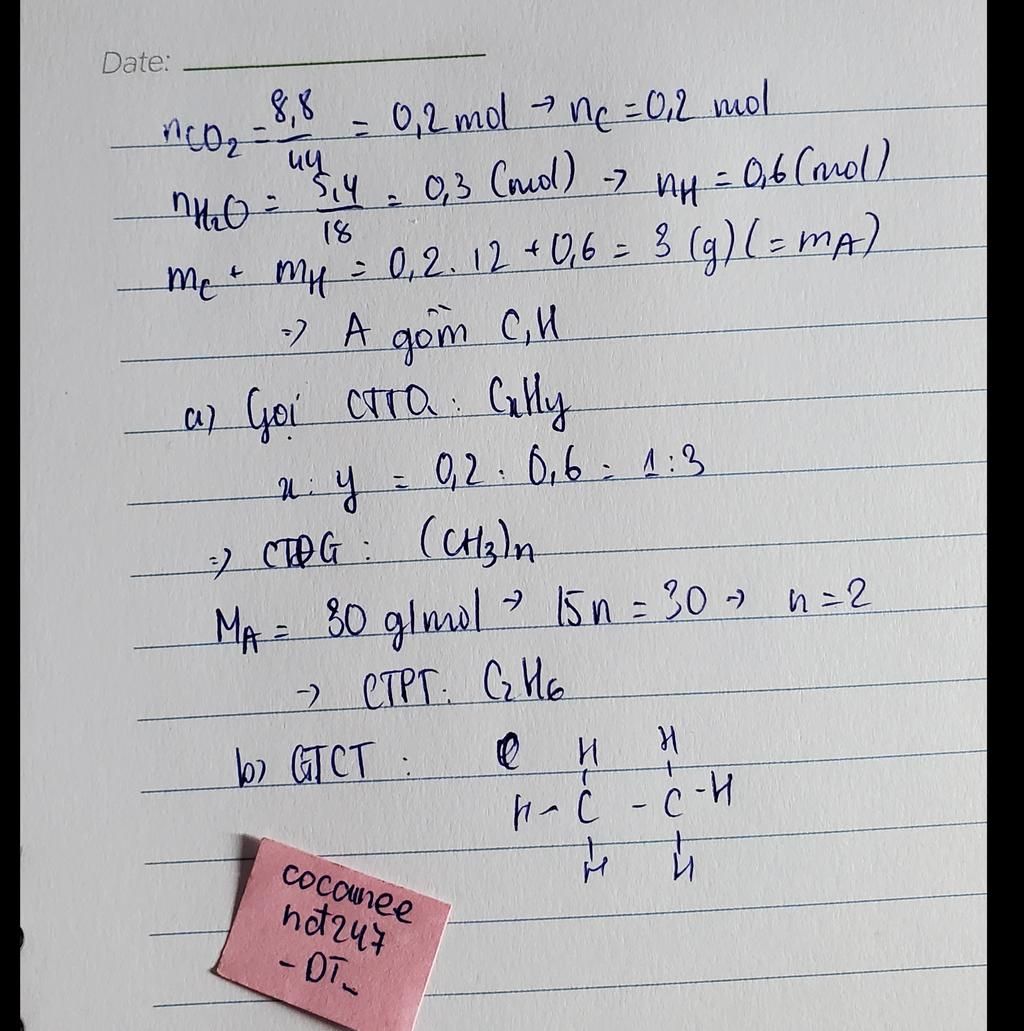 Date:
nCO₂ = 8,8/44 = 0,2 mol → nC = 0,2 mol
nH₂O = 5,4/18 = 0,3 (mol) → nH = 0,6 (mol)
mC + mH = 0,2.12 + 0,6 = 3 (g) (= mA)
=> A gồm C, H
a) Gọi CTTQ: CxHy
x : y = 0,2 : 0,6 = 1:3
=> CTĐG: (CH₃)n
MA = 30 g/mol → 15n = 30 → n = 2
→ CTPT: C₂H₆
b) CTCT :
H H
H - C - C - H
H H
cocainee
hdt247
- DT_